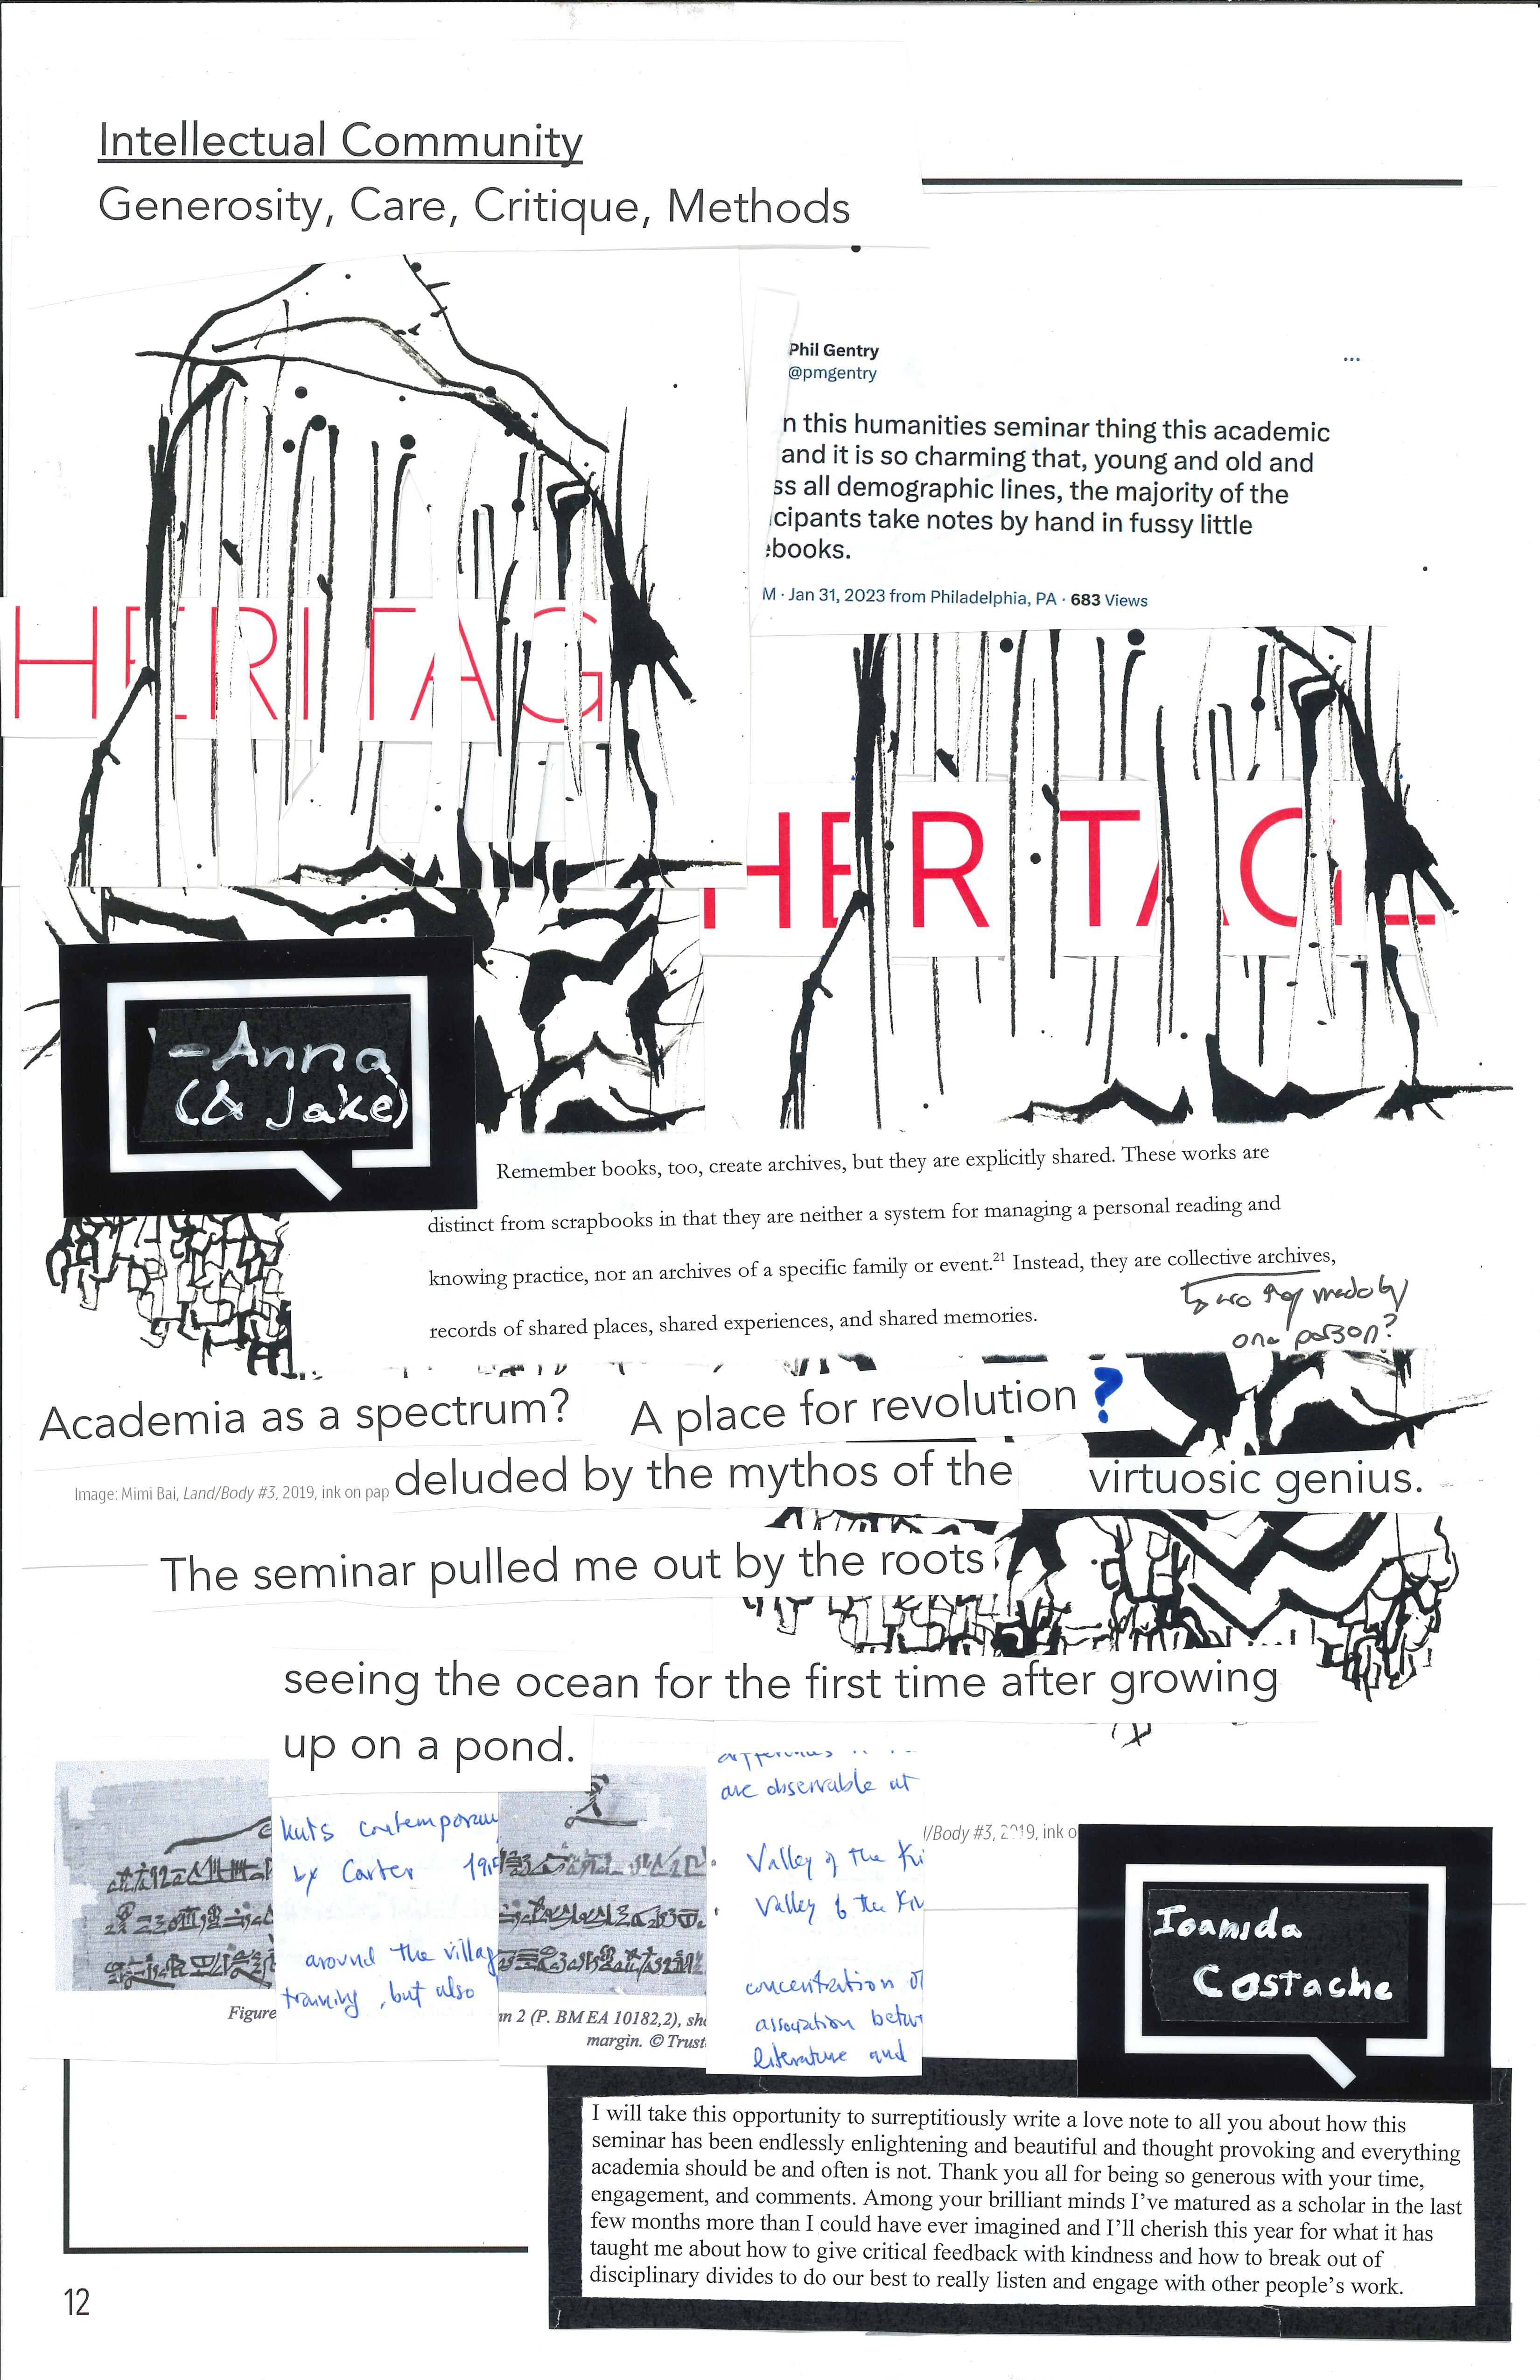 Intellectual Community
Generosity, Care, Critique, Methods
Phil Gentry
@pmgentry
n this humanities seminar thing this academic
and it is so charming that, young and old and
ss all demographic lines, the majority of the
cipants take notes by hand in fussy little
books.
M · Jan 31, 2023 from Philadelphia, PA · 683 Views
HERITAG
HERITAGE
-Anna
(& Jake)
Remember books, too, create archives, but they are explicitly shared. These works are
distinct from scrapbooks in that they are neither a system for managing a personal reading and
knowing practice, nor an archives of a specific family or event.21 Instead, they are collective archives,
records of shared places, shared experiences, and shared memories.
made by
one person?
Academia as a spectrum?
A place for revolution ?
Image: Mimi Bai, Land/Body #3, 2019, ink on pap
deluded by the mythos of the
virtuosic genius.
The seminar pulled me out by the roots
seeing the ocean for the first time after growing
up on a pond.
huts contemporan
by Carter
around the villag
training, but also
are observable at
Valley of the Ki
Valley of the Kin
concentration of
association betw
literature and
Figure
n 2 (P. BM EA 10182,2), sh
margin. © Trust
/Body #3, 2019, ink o
Ioanida
Costache
I will take this opportunity to surreptitiously write a love note to all you about how this
seminar has been endlessly enlightening and beautiful and thought provoking and everything
academia should be and often is not. Thank you all for being so generous with your time,
engagement, and comments. Among your brilliant minds I've matured as a scholar in the last
few months more than I could have ever imagined and I'll cherish this year for what it has
taught me about how to give critical feedback with kindness and how to break out of
disciplinary divides to do our best to really listen and engage with other people's work.
12